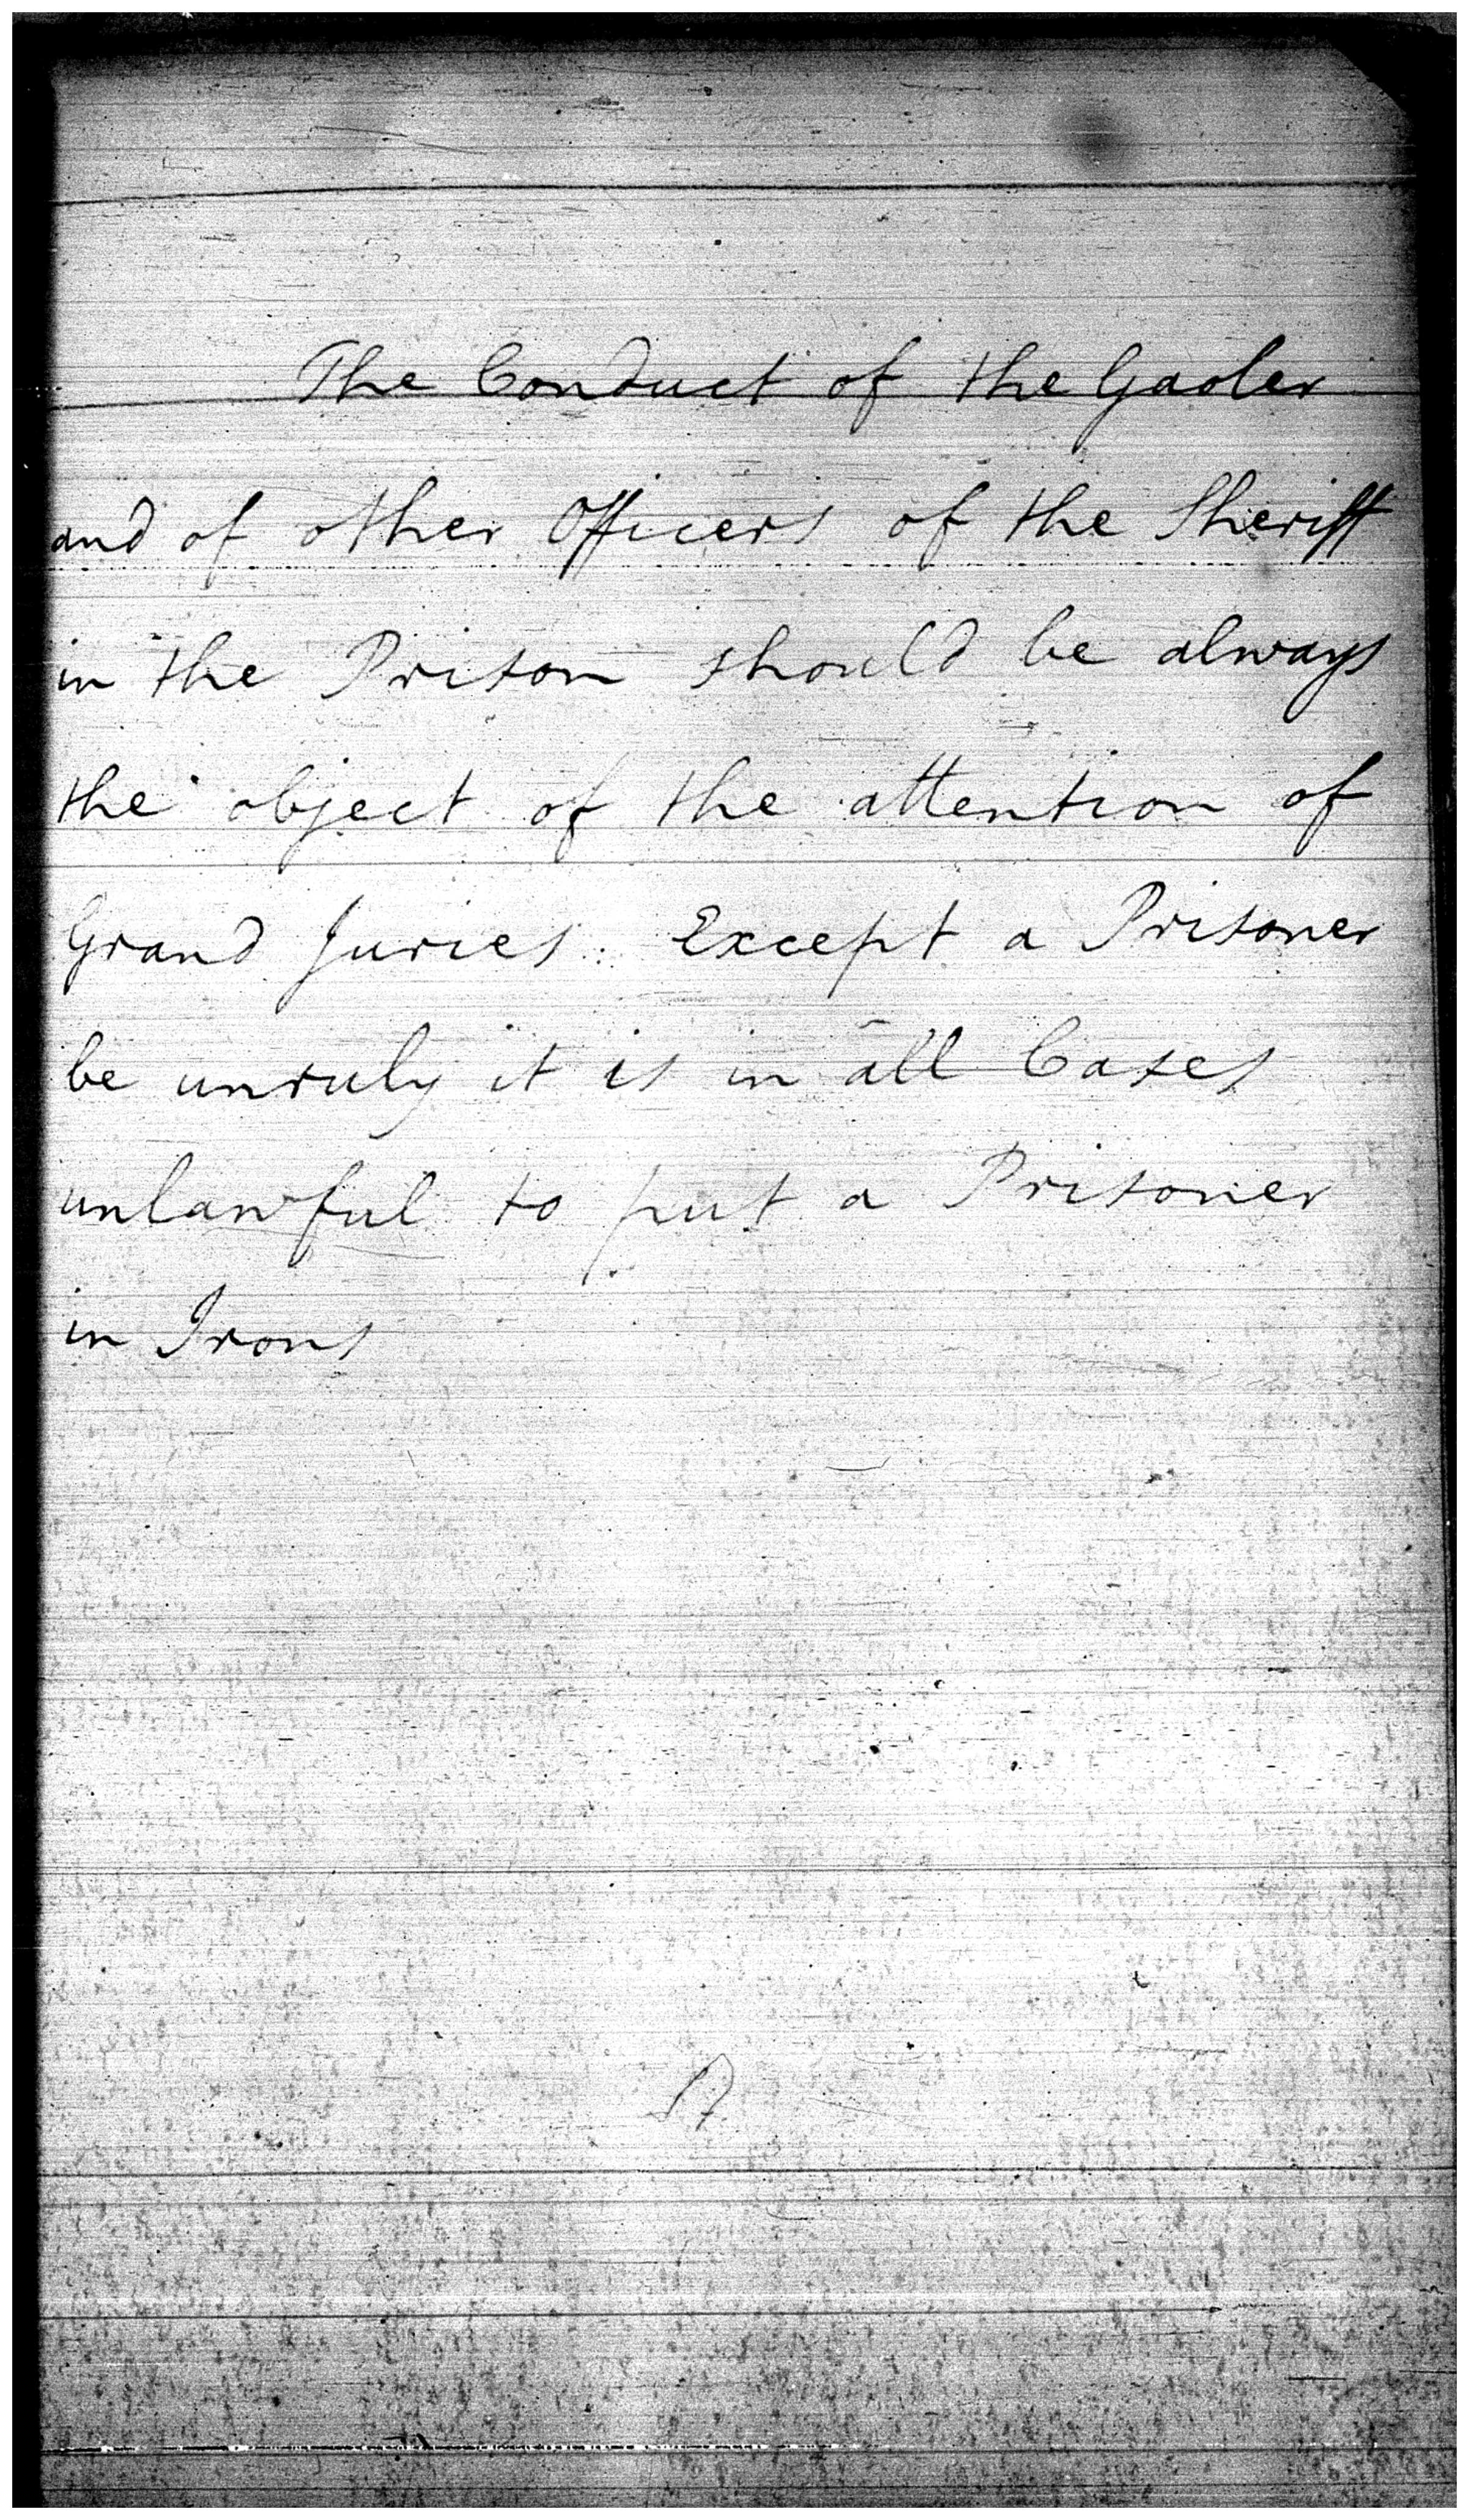 The Conduct of the Gaoler
and of other Officers of the Sheriff
in the Prison should be always
the object of the attention of
Grand Juries. Except a Prisoner
be unruly it is in all Cases
unlawful to put a Prisoner
in Irons